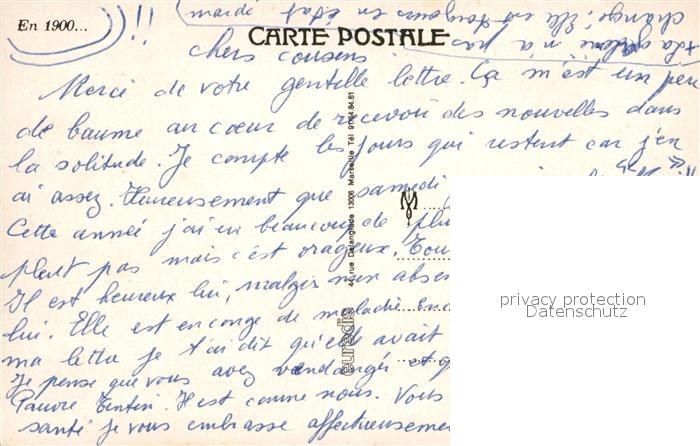 En 1900...
!!
CARTE POSTALE
La galerie n'a pas
changé! Elle est toujours en état
marde
chers cousins
Merci de votre gentille lettre. Ça m'est un peu
de baume au coeur de recevoir des nouvelles dans
la solitude. Je compte les jours qui restent car j'en
ai assez. Heureusement que samedi
Cette année j'ai eu beaucoup de plu
pleut pas mais c'est orageux. Tou
Il est heureux lui, malgré mon absen
lui. Elle est en congé de maladie. Enc
ma lettre je t'ai dit qu'elle avait
Je pense que vous avez vendangé et q
Pauvre Tintin. Il est comme nous. Vous
santé je vous embrasse affectueuseme
euredis 44, rue Dejanglade 13006 Marseille Tél 91.54.84.61
privacy protection
Datenschutz